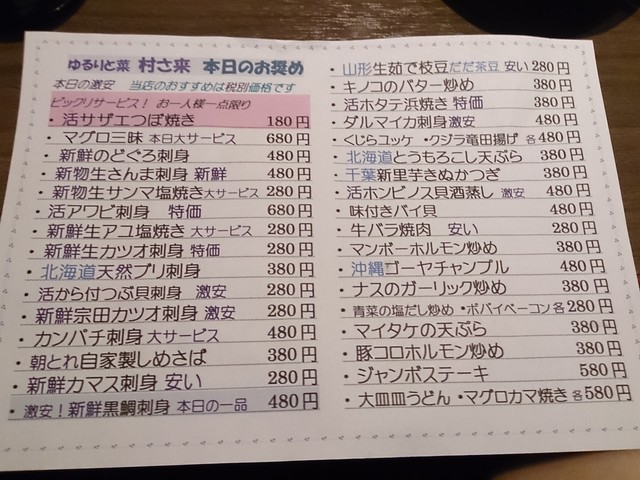 ゆるりと菜 村さ来 本日のお奨め
本日の激安 当店のおすすめは税別価格です
ビックリサービス！ お一人様一点限り
・活サザエつぼ焼き 180円
・マグロ三昧 本日大サービス 680円
・新鮮のどぐろ刺身 480円
・新物生さんま刺身 新鮮 480円
・新物生サンマ塩焼き大サービス 280円
・活アワビ刺身 特価 680円
・新鮮生アユ塩焼き 大サービス 280円
・新鮮生カツオ刺身 特価 280円
・北海道天然ブリ刺身 380円
・活から付つぶ貝刺身 激安 280円
・新鮮宗田カツオ刺身 激安 280円
・カンパチ刺身 大サービス 480円
・朝とれ自家製しめさば 380円
・新鮮カマス刺身 安い 280円
・激安！新鮮黒鯛刺身 本日の一品 480円
・山形生茹で枝豆だだ茶豆 安い 280円
・キノコのバター炒め 380円
・活ホタテ浜焼き 特価 380円
・ダルマイカ刺身激安 480円
・くじらユッケ ・クジラ竜田揚げ 各480円
・北海道とうもろこし天ぷら 380円
・千葉新里芋きぬかつぎ 380円
・活ホンビノス貝酒蒸し 激安 480円
・味付きバイ貝 480円
・牛バラ焼肉 安い 280円
・マンボーホルモン炒め 380円
・沖縄ゴーヤチャンプル 480円
・ナスのガーリック炒め 380円
・青菜の塩だし炒め ・ポパイベーコン 各280円
・マイタケの天ぷら 380円
・豚コロホルモン炒め 380円
・ジャンボステーキ 580円
・大皿皿うどん ・マグロカマ焼き 各580円